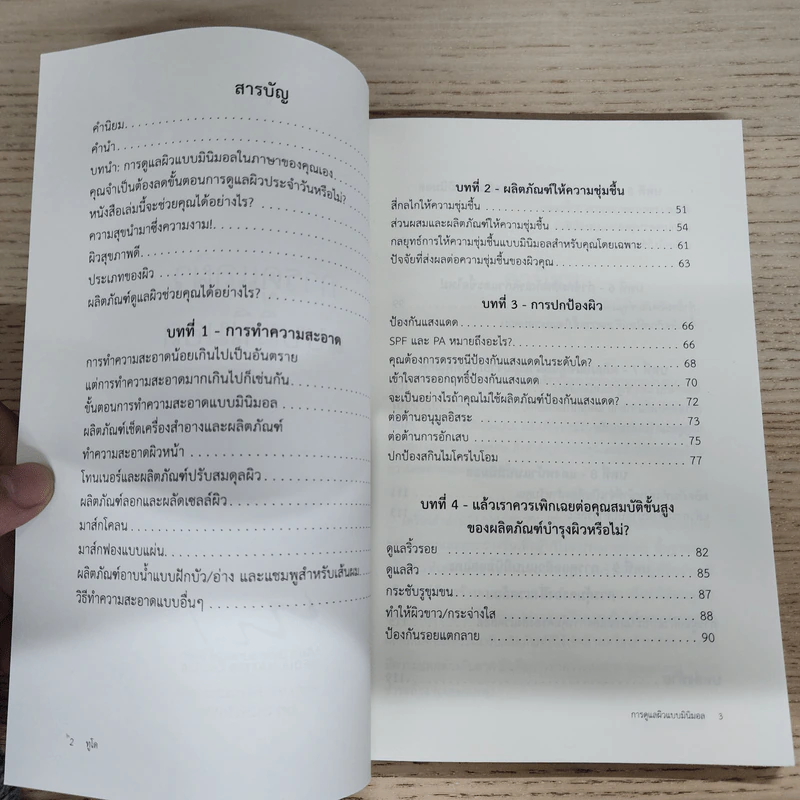 สารบัญ
คำนิยม
คำนำ
บทนำ: การดูแลผิวแบบมินิมอลในภาษาของคุณเอง
คุณจำเป็นต้องลดขั้นตอนการดูแลผิวประจำวันหรือไม่?
หนังสือเล่มนี้จะช่วยคุณได้อย่างไร?
ความสุขนำมาซึ่งความงาม!
ผิวสุขภาพดี
ประเภทของผิว
ผลิตภัณฑ์ดูแลผิวช่วยคุณได้อย่างไร?
บทที่ 1 - การทำความสะอาด
การทำความสะอาดน้อยเกินไปเป็นอันตราย
แต่การทำความสะอาดมากเกินไปก็เช่นกัน
ขั้นตอนการทำความสะอาดแบบมินิมอล
ผลิตภัณฑ์เช็ดเครื่องสำอางและผลิตภัณฑ์
ทำความสะอาดผิวหน้า
โทนเนอร์และผลิตภัณฑ์ปรับสมดุลผิว
ผลิตภัณฑ์ลอกและผลัดเซลล์ผิว
มาส์กโคลน
มาส์กฟองแบบแผ่น
ผลิตภัณฑ์อาบน้ำแบบฝักบัว/อ่าง และแชมพูสำหรับเส้นผม
วิธีทำความสะอาดแบบอื่นๆ
2 ทูใด
บทที่ 2 - ผลิตภัณฑ์ให้ความชุ่มชื้น
สี่กลไกให้ความชุ่มชื้น 51
ส่วนผสมและผลิตภัณฑ์ให้ความชุ่มชื้น 54
กลยุทธ์การให้ความชุ่มชื้นแบบมินิมอลสำหรับคุณโดยเฉพาะ 61
ปัจจัยที่ส่งผลต่อความชุ่มชื้นของผิวคุณ 63
บทที่ 3 - การปกป้องผิว
ป้องกันแสงแดด 66
SPF และ PA หมายถึงอะไร? 66
คุณต้องการดรรชนีป้องกันแสงแดดในระดับใด? 68
เข้าใจสารออกฤทธิ์ป้องกันแสงแดด 70
จะเป็นอย่างไรถ้าคุณไม่ใช้ผลิตภัณฑ์ป้องกันแสงแดด? 72
ต่อต้านอนุมูลอิสระ 73
ต่อต้านการอักเสบ 75
ปกป้องสกินไมโครไบโอม 77
บทที่ 4 - แล้วเราควรเพิกเฉยต่อคุณสมบัติขั้นสูง
ของผลิตภัณฑ์บำรุงผิวหรือไม่?
ดูแลริ้วรอย 82
ดูแลสิว 85
กระชับรูขุมขน 87
ทำให้ผิวขาว/กระจ่างใส 88
ป้องกันรอยแตกลาย 90
การดูแลผิวแบบมินิมอล 3